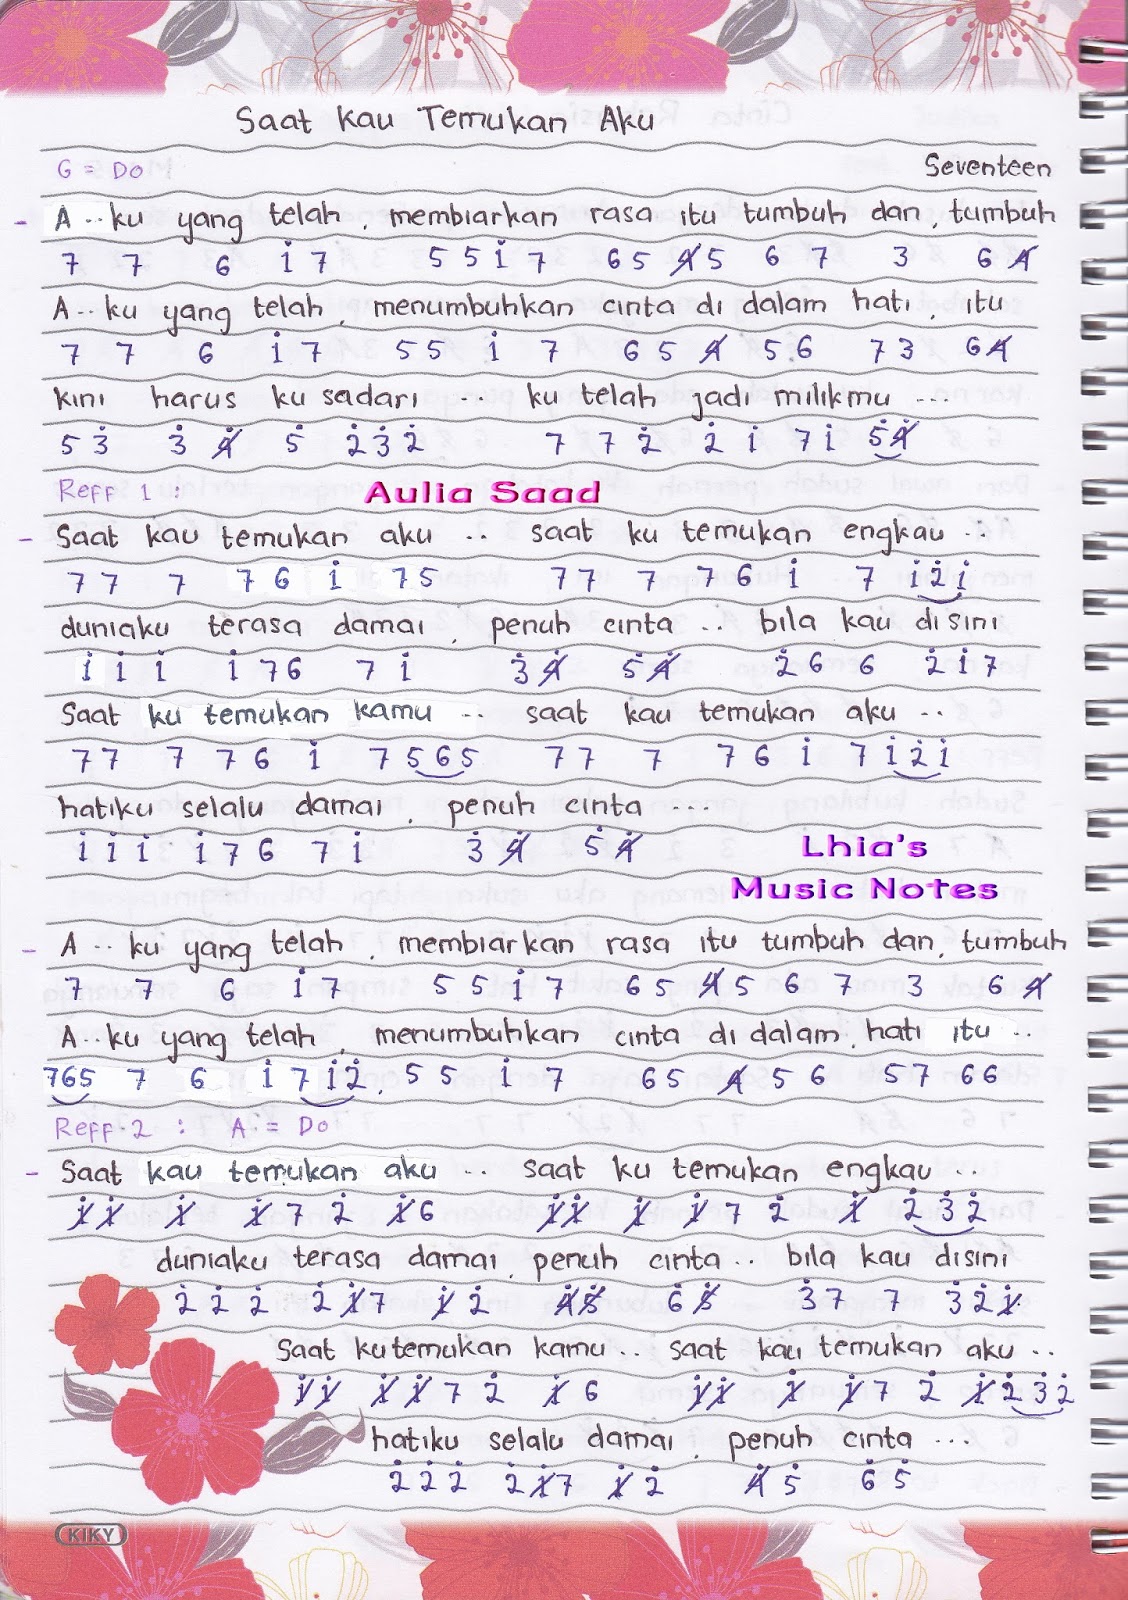 Saat Kau Temukan Aku
G = Do Seventeen
- A..ku yang telah, membiarkan rasa itu tumbuh dan, tumbuh
7 7 6 i̇ 7 5 5 i̇ 7 6 5 4̸ 5 6 7 3 6 4̸
A..ku yang telah, menumbuhkan cinta di dalam hati, itu
7 7 6 i̇ 7 5 5 i̇ 7 6 5 4̸ 5 6 7 3 6 4̸
kini harus ku sadari ... ku telah jadi milikmu ...
5 3̇ 3̇ 4̸̇ 5̇ 2̇ 3̇ 2̇ 7 7 2̇ 2̇ i̇ 7 i̇ 5̇ 4̸̇
Reff 1 : Aulia Saad
- Saat kau temukan aku .. saat ku temukan engkau ..
7 7 7 7 6 i̇ 7 5 7 7 7 7 6 i̇ 7 i̇ 2̇ i̇
duniaku terasa damai, penuh cinta .. bila kau disini
i̇ i̇ i̇ i̇ 7 6 7 i̇ 3̇ 4̸̇ 5̇ 4̸̇ 2̇ 6 6 2̇ i̇ 7
Saat ku temukan kamu .. saat kau temukan aku ..
7 7 7 7 6 i̇ 7 5 6 5 7 7 7 7 6 i̇ 7 i̇ 2̇ i̇
hatiku selalu damai, penuh cinta ...
i̇ i̇ i̇ i̇ 7 6 7 i̇ 3̇ 4̸̇ 5̇ 4̸̇
Lhia's
Music Notes
- A..ku yang telah, membiarkan rasa itu tumbuh dan, tumbuh
7 7 6 i̇ 7 5 5 i̇ 7 6 5 4̸ 5 6 7 3 6 4̸
A..ku yang telah, menumbuhkan cinta di dalam, hati itu ..
7 6 5 7 6 i̇ 7 i̇ 2̇ 5 5 i̇ 7 6 5 4̸ 5 6 5 7 6 6
Reff 2 : A = Do
- Saat kau temukan aku .. saat ku temukan engkau ...
1̸̇ 1̸̇ 1̸̇ 1̸̇ 7 2̇ 1̸̇ 6 1̸̇ 1̸̇ 1̸̇ 1̸̇ 7 2̇ 1̸̇ 2̇ 3̇ 2̇
duniaku terasa damai, penuh cinta .. bila kau disini
2̇ 2̇ 2̇ 2̇ 1̸̇ 7 1̸̇ 2̇ 4̸̇ 5̸̇ 6̇ 5̸̇ 3̇ 7 7 3̇ 2̇ 1̸̇
Saat ku temukan kamu .. saat kau temukan aku ..
1̸̇ 1̸̇ 1̸̇ 1̸̇ 7 2̇ 1̸̇ 6 1̸̇ 1̸̇ 1̸̇ 1̸̇ 7 2̇ 1̸̇ 2̇ 3̇ 2̇
hatiku selalu damai, penuh cinta ...
2̇ 2̇ 2̇ 2̇ 1̸̇ 7 1̸̇ 2̇ 4̸̇ 5̇ 6̇ 5̇
KIKY